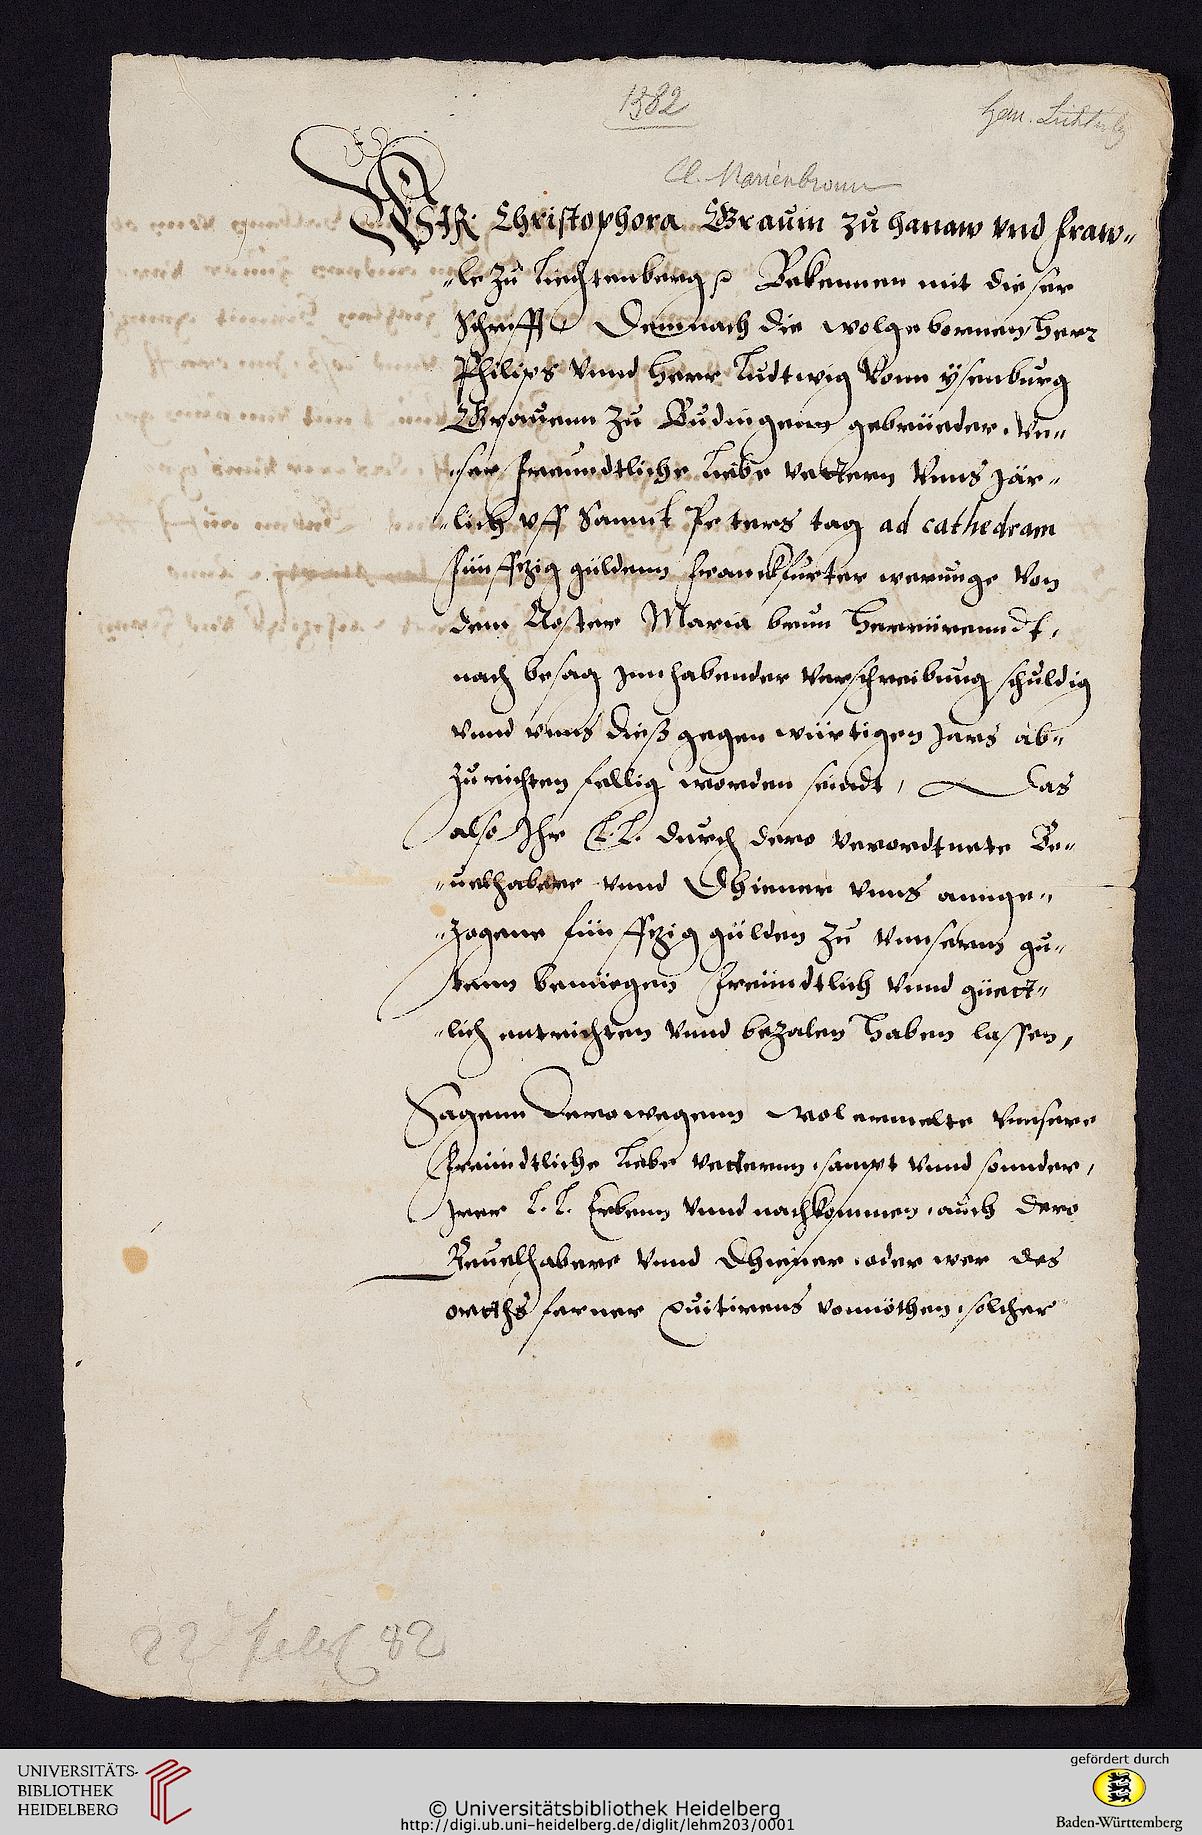 1582
Han. Lichtenbg
Cl. Marienbronn
WIR Christophora Grauin zu Hanaw vnd Fraw-
-le zu Liechtenberg Bekennen mit dieser
Schrifft Demnach die wolgebornen Herr
Philips vnnd Herr Ludtwig vonn Ysenburg
Grauenn zu Budingenn gebrüeder, vn-
ser freundtliche liebe vettern vnns Jär-
-lich vff Sannt Peters tag ad cathedram
fünffzig güldenn Franckfurter werunge von
dem Closter Maria brun herrürenndt,
nach besag Innhabender verschreibung schuldig
vnnd vnns dieß gegenwürtigen Jars ab-
zurichten fellig worden seindt, Das
also Ihr E. L. durch dero verordtnete Be-
-uelhabere vnnd Dhiener vnns annge-
-zogene fünffzig gülden zu vnnserm gu-
tenn benüegen freündtlich vnnd güett-
-lich entrichten vnnd bezalen haben lassen,
Sagenn derowegenn wolermelte vnnsere
freündtliche liebe vetternn, sampt vnnd sonnder,
Irer L. L. Erbenn vnnd nachkommen, auch dero
Beuelhabere vnnd Dhiener, oder wer des
ortths ferner quitirens vonnöthen, solcher
22 Febr 82
UNIVERSITÄTS-
BIBLIOTHEK
HEIDELBERG
© Universitätsbibliothek Heidelberg
http://digi.ub.uni-heidelberg.de/diglit/lehm203/0001
gefördert durch
Baden-Württemberg